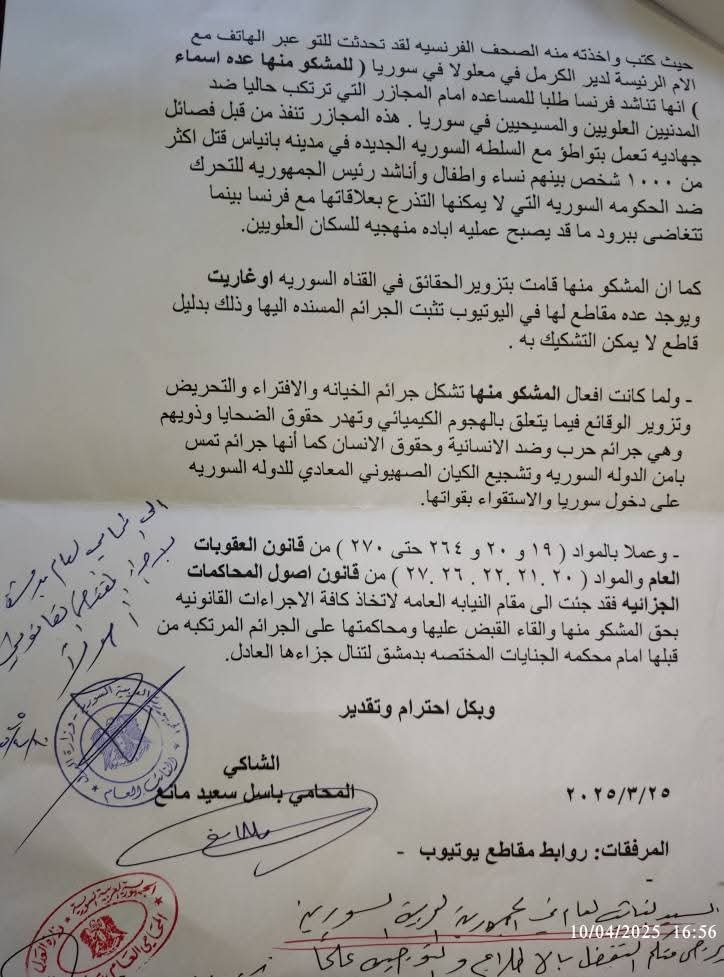 حيث كتب واخذته منه الصحف الفرنسيه لقد تحدثت للتو عبر الهاتف مع
الام الرئيسة لدير الكرمل في معلولا في سوريا ( للمشكو منها عده اسماء
) انها تناشد فرنسا طلبا للمساعده امام المجازر التي ترتكب حاليا ضد
المدنيين العلويين والمسيحيين في سوريا . هذه المجازر تنفذ من قبل فصائل
جهاديه تعمل بتواطؤ مع السلطه السوريه الجديده في مدينه بانياس قتل اكثر
من ١٠٠٠ شخص بينهم نساء واطفال وأناشد رئيس الجمهوريه للتحرك
ضد الحكومه السوريه التي لا يمكنها التذرع بعلاقاتها مع فرنسا بينما
تتغاضى ببرود ما قد يصبح عمليه اباده منهجيه للسكان العلويين.
كما ان المشكو منها قامت بتزوير الحقائق في القناه السوريه اوغاريت
ويوجد عده مقاطع لها في اليوتيوب تثبت الجرائم المسنده اليها وذلك بدليل
قاطع لا يمكن التشكيك به .
- ولما كانت افعال المشكو منها تشكل جرائم الخيانه والافتراء والتحريض
وتزوير الوقائع فيما يتعلق بالهجوم الكيميائي وتهدر حقوق الضحايا وذويهم
وهي جرائم حرب وضد الانسانية وحقوق الانسان كما أنها جرائم تمس
بامن الدوله السوريه وتشجيع الكيان الصهيوني المعادي للدوله السوريه
على دخول سوريا والاستقواء بقواتها.
- وعملا بالمواد ( ١٩ و ٢٠ و ٢٦٤ حتى ٢٧٠ ) من قانون العقوبات
العام والمواد ( ٢٠ .٢١ .٢٢ .٢٦ .٢٧ ) من قانون اصول المحاكمات
الجزائيه فقد جئت الى مقام النيابه العامه لاتخاذ كافة الاجراءات القانونيه
بحق المشكو منها والقاء القبض عليها ومحاكمتها على الجرائم المرتكبه من
قبلها امام محكمه الجنايات المختصه بدمشق لتنال جزاءها العادل.
وبكل احترام وتقدير
الشاكي
المحامي باسل سعيد مانع
٢٠٢٥/٣/٢٥
المرفقات: روابط مقاطع يوتيوب -
الى المحامي العام بدمشق
لاجراء المقتضى القانوني
أصولاً
الجمهورية العربية السورية - وزارة العدل
النائب العام
السيد النائب العام في الجمهورية العربية السورية
يرجى التفضل بالاطلاع والتوجيه
الجمهورية العربية السورية
وزارة العدل
المحامي العام
10/04/2025 16:56